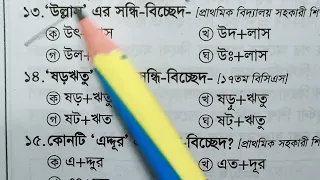 ১৩. ‘উল্লাস’ এর সন্ধি-বিচ্ছেদ- [প্রাথমিক বিদ্যালয় সহকারী শি
ক উৎ+লাস খ উদ+লাস
গ উল+ ঘ উঃ+লাস
১৪. ‘ষড়ঋতু’ সন্ধি-বিচ্ছেদ- [১৭তম বিসিএস]
ক ষড়+ঋতু খ ষড়ু+ঋতু
গ ষট+ঋতু ঘ ষট্+ঋতু
১৫. কোনটি ‘এদ্দূর বিচ্ছেদ? [প্রাথমিক সহকারী শি
ক এ+দ্দুর খ এত+দূর